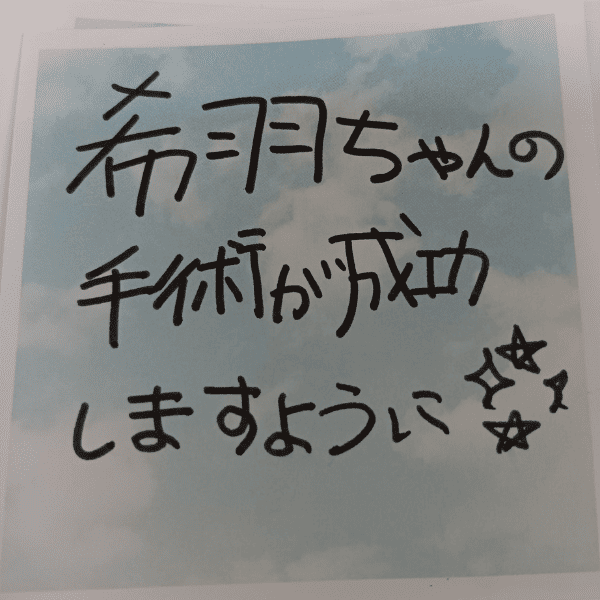 希羽ちゃんの
手術が成功
しますように